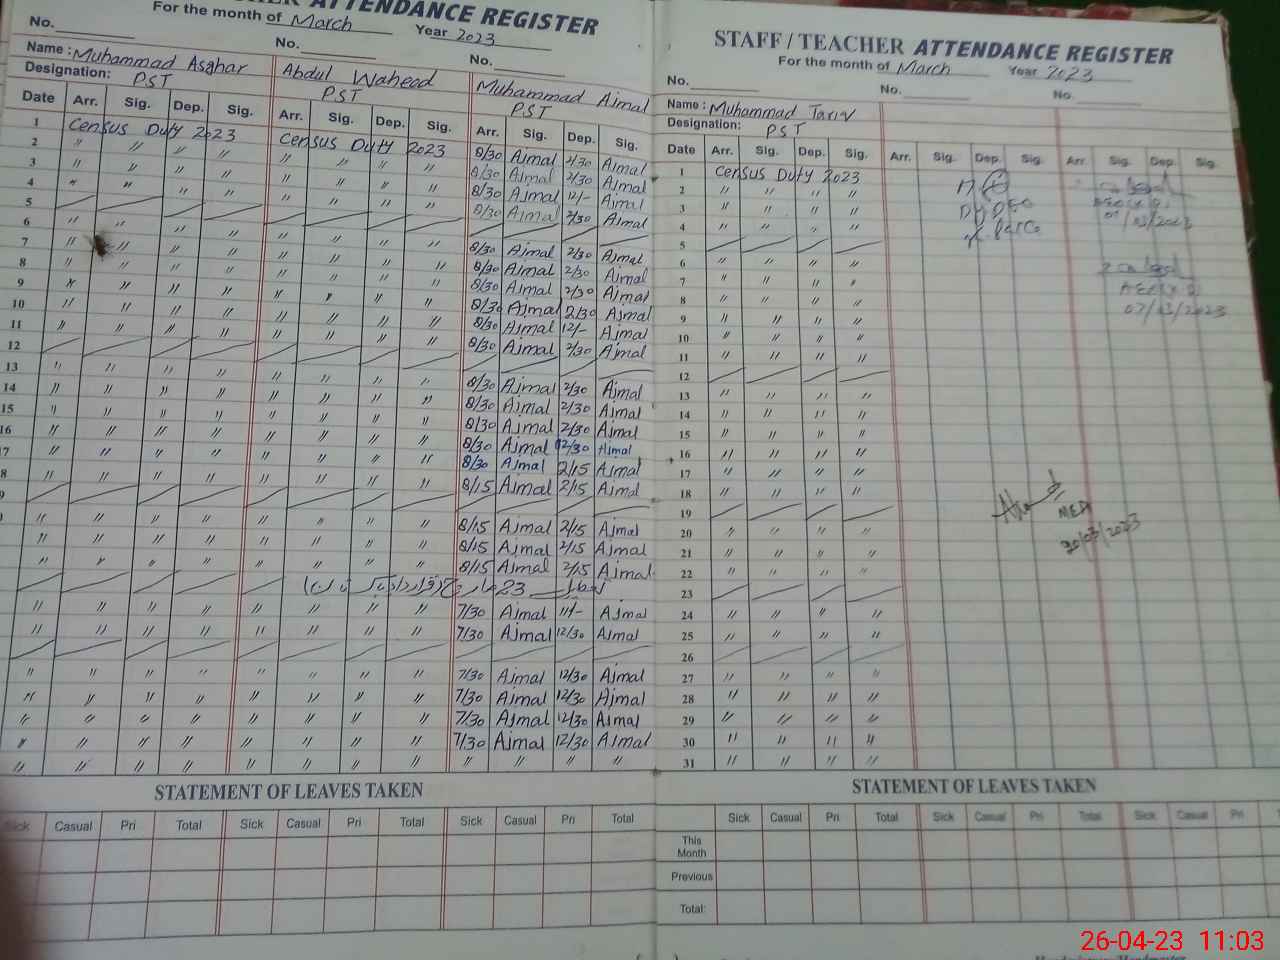 ATTENDANCE REGISTER
For the month of March Year 2023
No. No. No.
Name: Muhammad Asghar Abdul Waheed Muhammad Ajmal
Designation: PST PST PST
Date Arr. Sig. Dep. Sig. Arr. Sig. Dep. Sig. Arr. Sig. Dep. Sig.
1 Census Duty 2023 Census Duty 2023 8/30 Ajmal 2/30 Ajmal
2 〃 〃 〃 〃 〃 〃 〃 〃 8/30 Ajmal 2/30 Ajmal
3 〃 〃 〃 〃 〃 〃 〃 〃 8/30 Ajmal 12/- Ajmal
4 〃 〃 〃 〃 〃 〃 〃 〃 8/30 Ajmal 2/30 Ajmal
5
6 〃 〃 〃 〃 〃 〃 〃 〃 8/30 Ajmal 2/30 Ajmal
7 〃 〃 〃 〃 〃 〃 〃 〃 8/30 Ajmal 2/30 Ajmal
8 〃 〃 〃 〃 〃 〃 〃 〃 8/30 Ajmal 2/30 Ajmal
9 〃 〃 〃 〃 〃 〃 〃 〃 8/30 Ajmal 2/30 Ajmal
10 〃 〃 〃 〃 〃 〃 〃 〃 8/30 Ajmal 12/- Ajmal
11 〃 〃 〃 〃 〃 〃 〃 〃 8/30 Ajmal 2/30 Ajmal
12
13 〃 〃 〃 〃 〃 〃 〃 〃 8/30 Ajmal 2/30 Ajmal
14 〃 〃 〃 〃 〃 〃 〃 〃 8/30 Ajmal 2/30 Ajmal
15 〃 〃 〃 〃 〃 〃 〃 〃 8/30 Ajmal 2/30 Ajmal
16 〃 〃 〃 〃 〃 〃 〃 〃 8/30 Ajmal 12/30 Ajmal
17 〃 〃 〃 〃 〃 〃 〃 〃 8/30 Ajmal 2/15 Ajmal
8 〃 〃 〃 〃 〃 〃 〃 〃 8/15 Ajmal 2/15 Ajmal
9
〃 〃 〃 〃 〃 〃 〃 〃 8/15 Ajmal 2/15 Ajmal
〃 〃 〃 〃 〃 〃 〃 〃 8/15 Ajmal 2/15 Ajmal
〃 〃 〃 〃 〃 〃 〃 〃 8/15 Ajmal 2/15 Ajmal
تعطیل 23 مارچ (قرارداد پاکستان)
〃 〃 〃 〃 〃 〃 〃 〃 7/30 Ajmal 11/- Ajmal
〃 〃 〃 〃 〃 〃 〃 〃 7/30 Ajmal 12/30 Ajmal
〃 〃 〃 〃 〃 〃 〃 〃 7/30 Ajmal 12/30 Ajmal
〃 〃 〃 〃 〃 〃 〃 〃 7/30 Ajmal 12/30 Ajmal
〃 〃 〃 〃 〃 〃 〃 〃 7/30 Ajmal 12/30 Ajmal
〃 〃 〃 〃 〃 〃 〃 〃 7/30 Ajmal 12/30 Ajmal
〃 〃 〃 〃 〃 〃 〃 〃 〃 〃 〃 〃
STATEMENT OF LEAVES TAKEN
Sick Casual Pri Total Sick Casual Pri Total Sick Casual Pri Total
STAFF / TEACHER ATTENDANCE REGISTER
For the month of March Year 2023
No. No. No.
Name: Muhammad Tariq
Designation: PST
Date Arr. Sig. Dep. Sig. Arr. Sig. Dep. Sig. Arr. Sig. Dep. Sig.
1 Census Duty 2023
2 〃 〃 〃 〃
3 〃 〃 〃 〃
4 〃 〃 〃 〃
5
6 〃 〃 〃 〃
7 〃 〃 〃 〃
8 〃 〃 〃 〃
9 〃 〃 〃 〃
10 〃 〃 〃 〃
11 〃 〃 〃 〃
12
13 〃 〃 〃 〃
14 〃 〃 〃 〃
15 〃 〃 〃 〃
16 〃 〃 〃 〃
17 〃 〃 〃 〃
18 〃 〃 〃 〃
19
20 〃 〃 〃 〃
21 〃 〃 〃 〃
22 〃 〃 〃 〃
23
24 〃 〃 〃 〃
25 〃 〃 〃 〃
26
27 〃 〃 〃 〃
28 〃 〃 〃 〃
29 〃 〃 〃 〃
30 〃 〃 〃 〃
31 〃 〃 〃 〃
Dy DEO
01/03/2023
07/03/2023
MEA
20/03/2023
STATEMENT OF LEAVES TAKEN
Sick Casual Pri Total Sick Casual Pri Total Sick Casual Pri
This Month
Previous
Total:
26-04-23 11:03